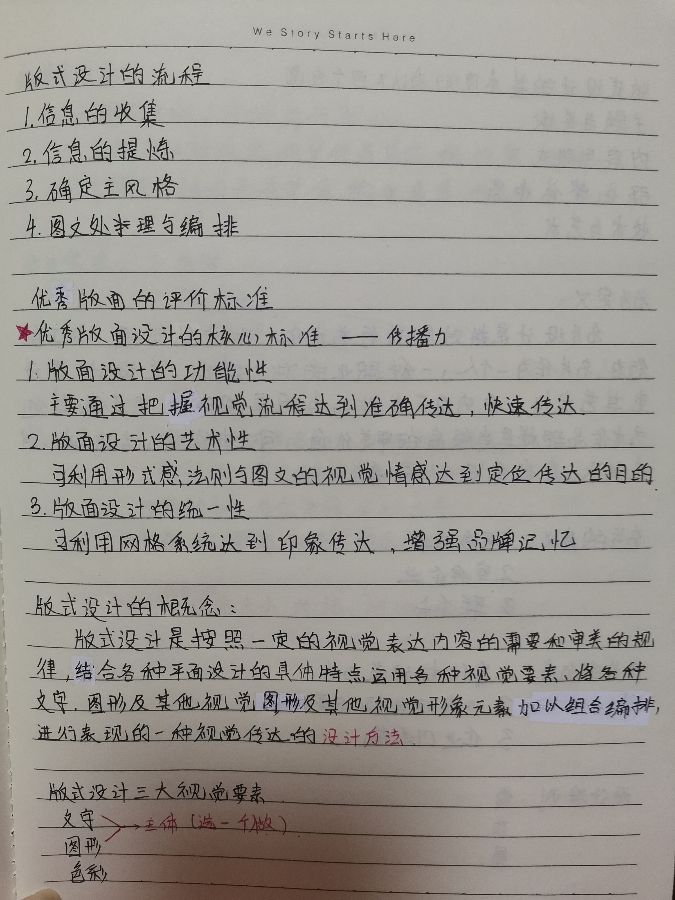 We Story Starts Here
版式设计的流程
1.信息的收集
2.信息的提炼
3.确定主风格
4.图文处理与编排
优秀版面的评价标准
★优秀版面设计的核心标准 —— 传播力
1.版面设计的功能性
主要通过把握视觉流程达到准确传达，快速传达
2.版面设计的艺术性
可利用形式感,法则与图文的视觉情感达到定位传达的目的
3.版面设计的统一性
可利用网格系统达到印象传达，增强品牌记忆
版式设计的概念：
版式设计是按照一定的视觉表达内容的需要和审美的规
律,结合各种平面设计的具体特点运用各种视觉要素、将各种
文字.图形及其他视觉图形及其他视觉形象元素加以组合编排,
进行表现的一种视觉传达的设计方法.
版式设计三大视觉要素
文字
→主体(选一个做)
图形
色彩